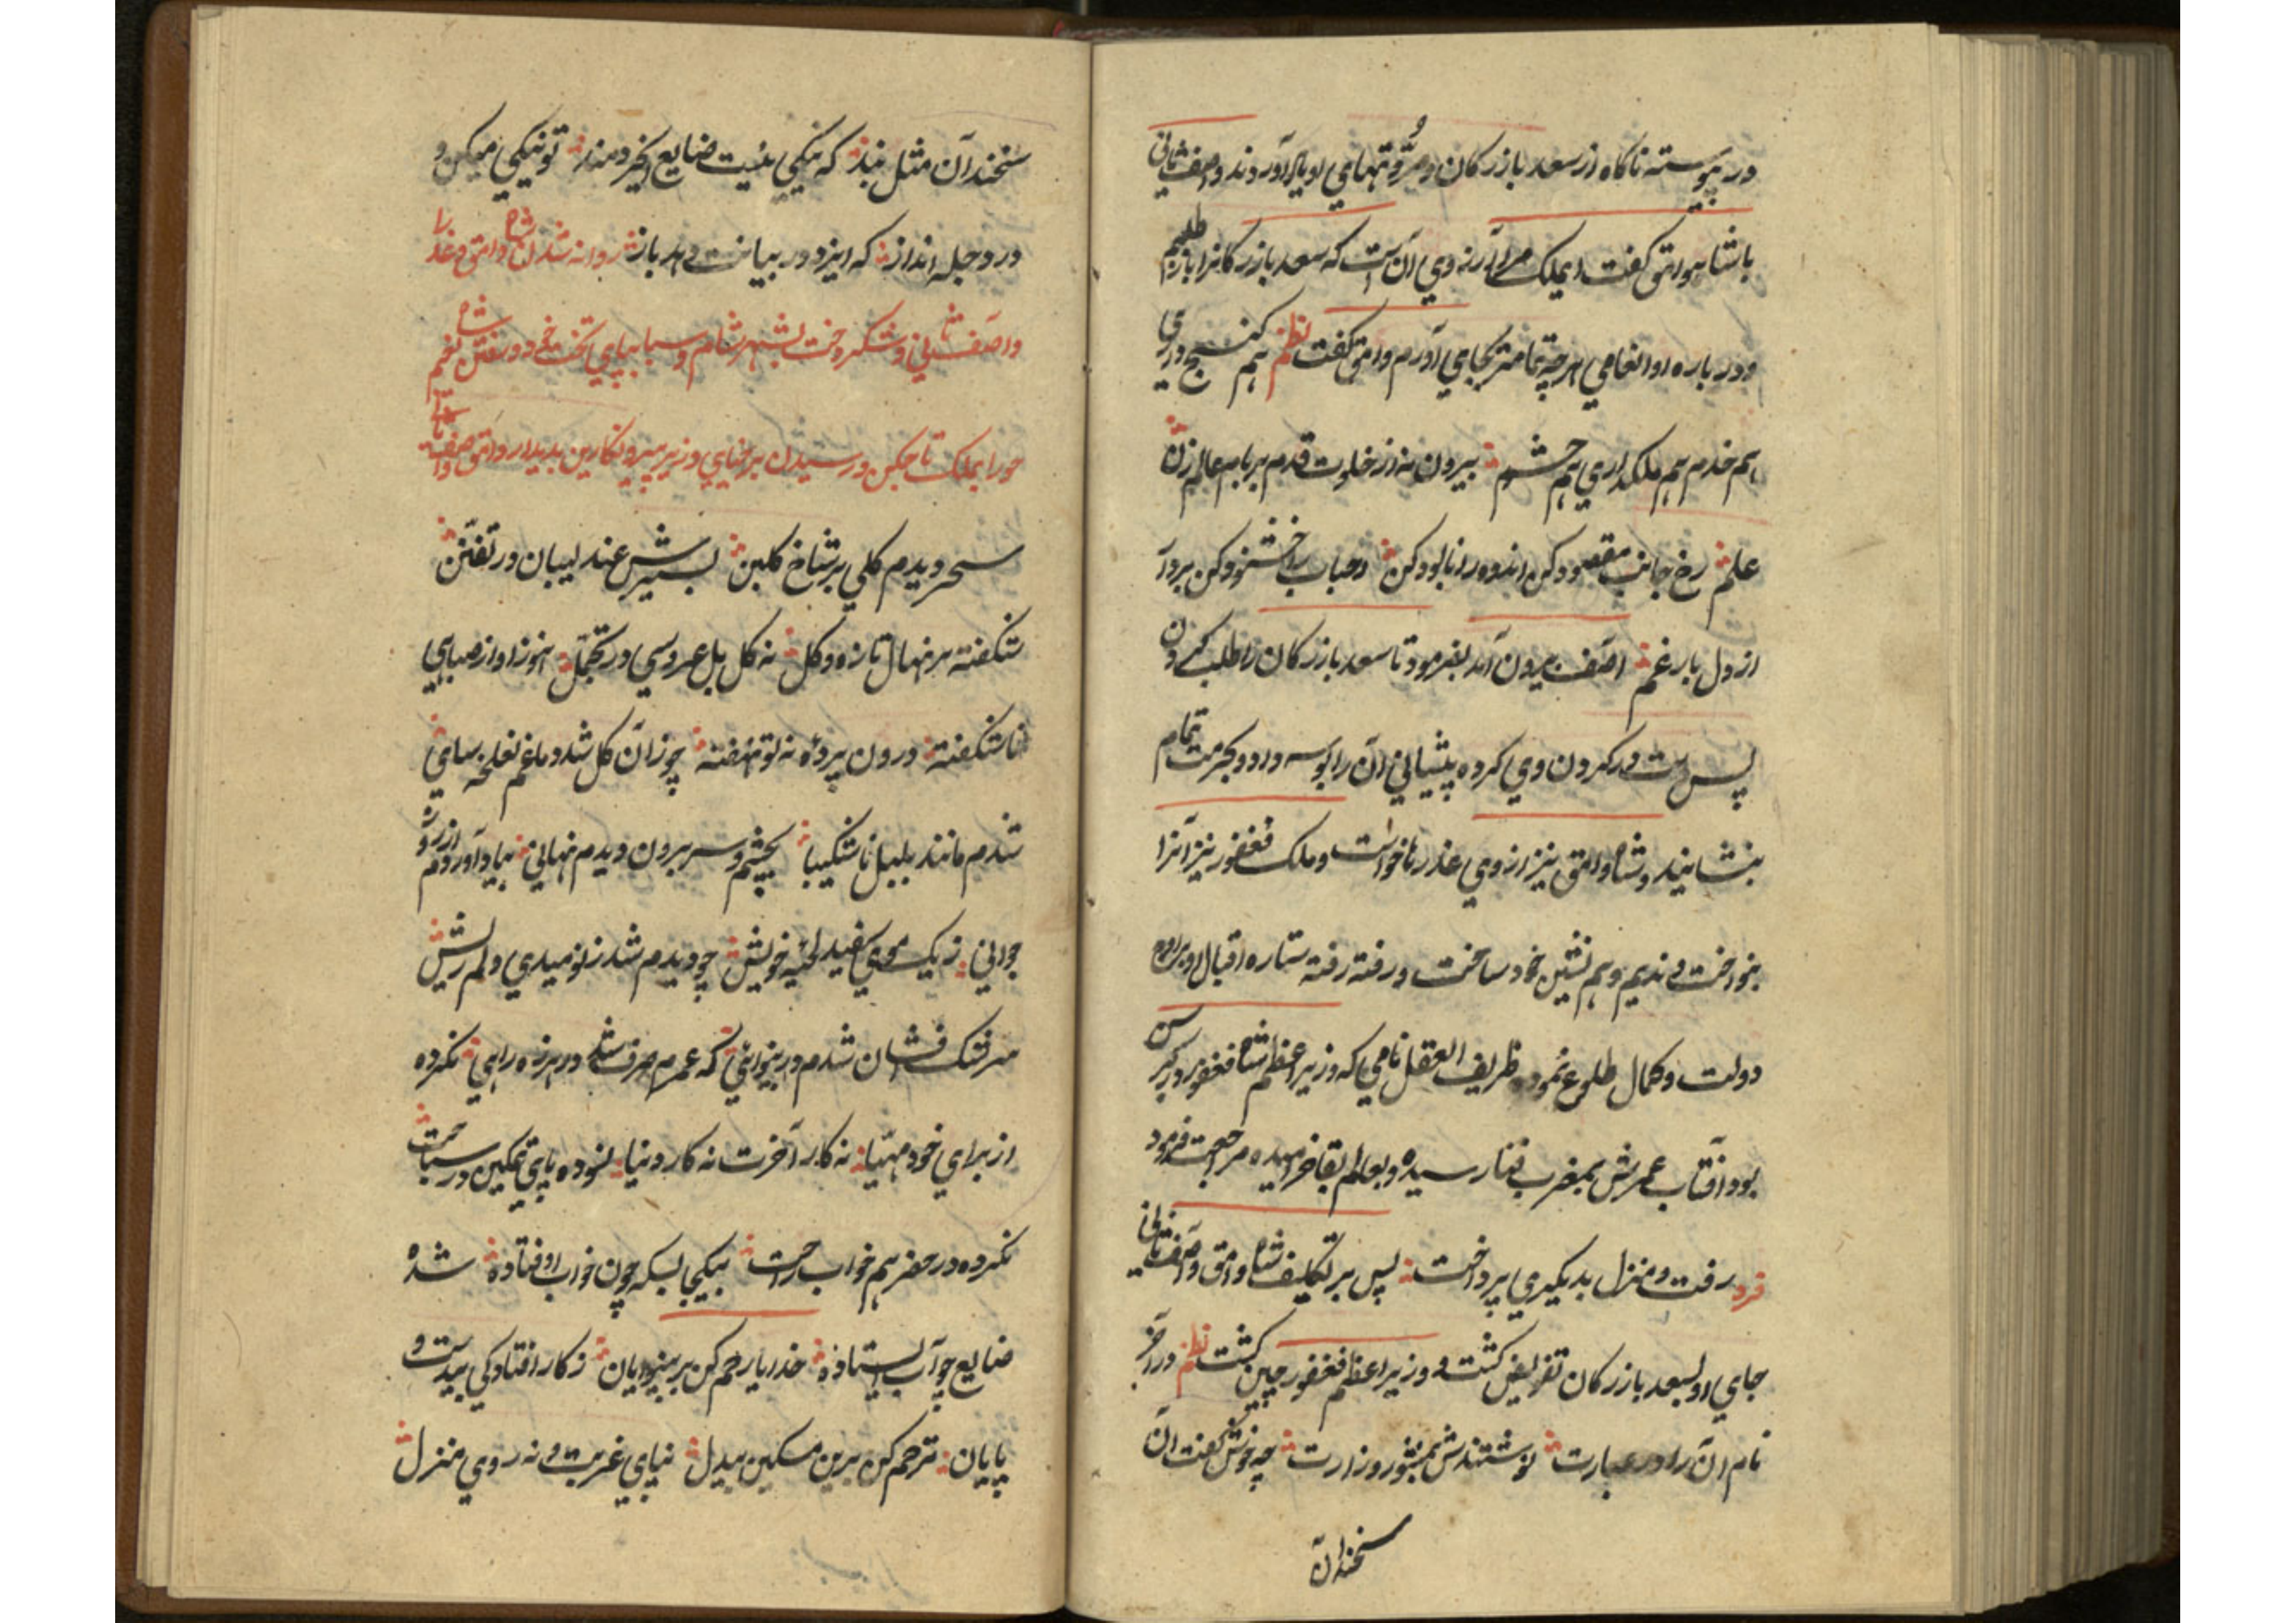 در پیوسته ناکاه از سعد بازرکان و مروتهای او یاد آوردند و اصف ثانی
با شاه وامق کفت ایملک مرا آرزوی آن است که سعد بازرکانرا باز طلبم
و در باره او انعامی هرچه تمامتر بجای آورم وامق کفت نظم هم کنج وری
هم خدم هم ملکداری هم حشم بیرون نه از خلوت قدم بر بام عالم زن
علم رخ جانب مقصود کن اندوه را نابود کن احباب را خشنود کن بردار
از دل بار غم اصف بیرون آمد بفرمود تا سعد بازرکان را طلب کردن
پس دست در کردون وی کرده پیشانی آن را بوسه داد و بحرمت تمام
بنشانیند و شاه وامق نیز از وی عذرها خواست و ملک فغفور نیز آنرا
بنواخت و ندیم و هم نشین خود ساخت و رفته رفته ستاره اقبال او بر اوج
دولت و کمال طلوع نمود ظریف العقل نامی که وزیر اعظم شاه فغفور و پیر کبر سن
بود آفتاب عمرش بمغرب فنا رسیده و بعالم بقا خرامیده مراجعت فرمود
فرد رفت و منزل بدیکری پرداخت پس بر تکلیف شاه وامق و آصف ثانی
جای او بسعد بازرکان تفویض کشت و وزیر اعظم فغفور چین کشت نظم در آخر
نام آن را در عبارت نوشتندش بمنشور وزارت چه خوش کفت آن
سخندان
سخندان مثل نبذ که نیکی نیست ضایع ای خردمند تو نیکی میکن و
در دجله انداز که ایزد در بیابانت دهد باز روانه شدن شاه وامق و عذرا
و آصف ثانی و شکر و خت بشهر شام و سبا بپای تخت خود و رفتن نغم شاه
حورا بملک تاجکن و رسیدن برخیای وزیر پیر و نکارین بدیدار وامق و آصف ثانی
سحر دیدم کلی بر شاخ کلبن بسیرش عندلیبان در تفتن
شکفته بر نهال تازه و کل نه کل بل عروسی در تجمل هنوز او از صبایی
ناشکفته درون پرده نه تو نهفته چو زان کل شد دماغم نغلخه سای
شدم مانند بلبل ناشکیبا بچشم و سر برون دیدم نهالی بیاد آوردم از روز
جوانی ز یک موی سفید لحیه خویش چو دیدم شد ز نومیدی دلم ریش
سرشک افشان شدم در بینوائی که عمرم صرف شد در هرزه رایی نکرده
از برای خود مهیا نه کار آخرت نه کار دنیا نسوده پای تمکین در سیاحت
نکرده در حضر هم خواب راحت بیکجا بسکه چون خواب اوفتاده شده
ضایع چو آب ایستاده خدایا رحم کن بر بینوایان ز کار افتادکی بیدست و
پایان ترحم کن برین مسکین بیدل نپای غربت و نه روی منزل